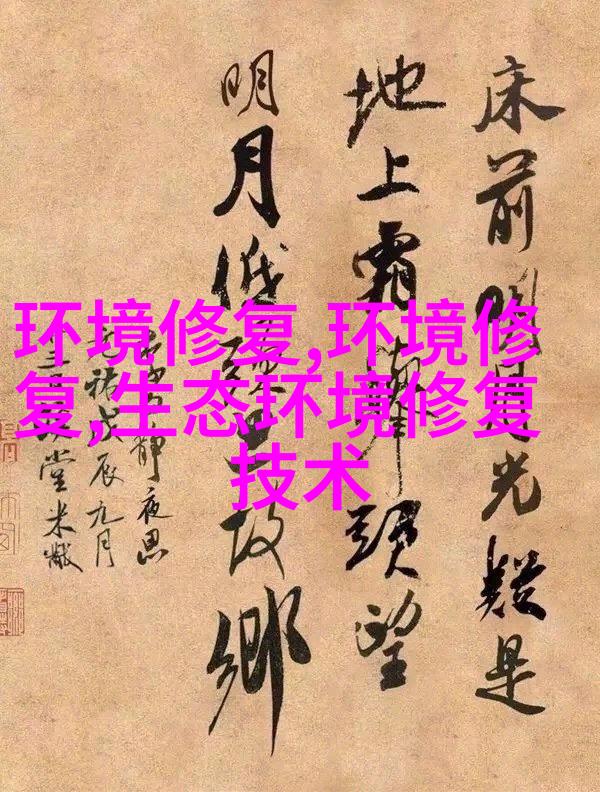 环境修复,环境修
复,生态环境修复
技术
床前明月光疑是
地上霜舉頭望
明月低頭思故鄉
靜夜思
祐戊辰九月
堂米黻